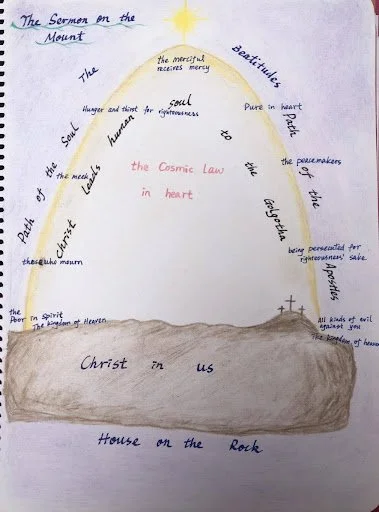 The Sermon on the
Mount
The Beatitudes
the merciful
receives mercy
Hunger and thirst for righteousness
Pure in heart
the meek
the peacemakers
those who mourn
being persecuted for
righteousness' sake
the
Poor in Spirit
The kingdom of Heaven
All kinds of evil
against you
the kingdom of heaven
Path of the Soul
Path of the Apostles
Christ leads human soul to the Golgotha
the Cosmic Law
in heart
Christ in us
House on the Rock